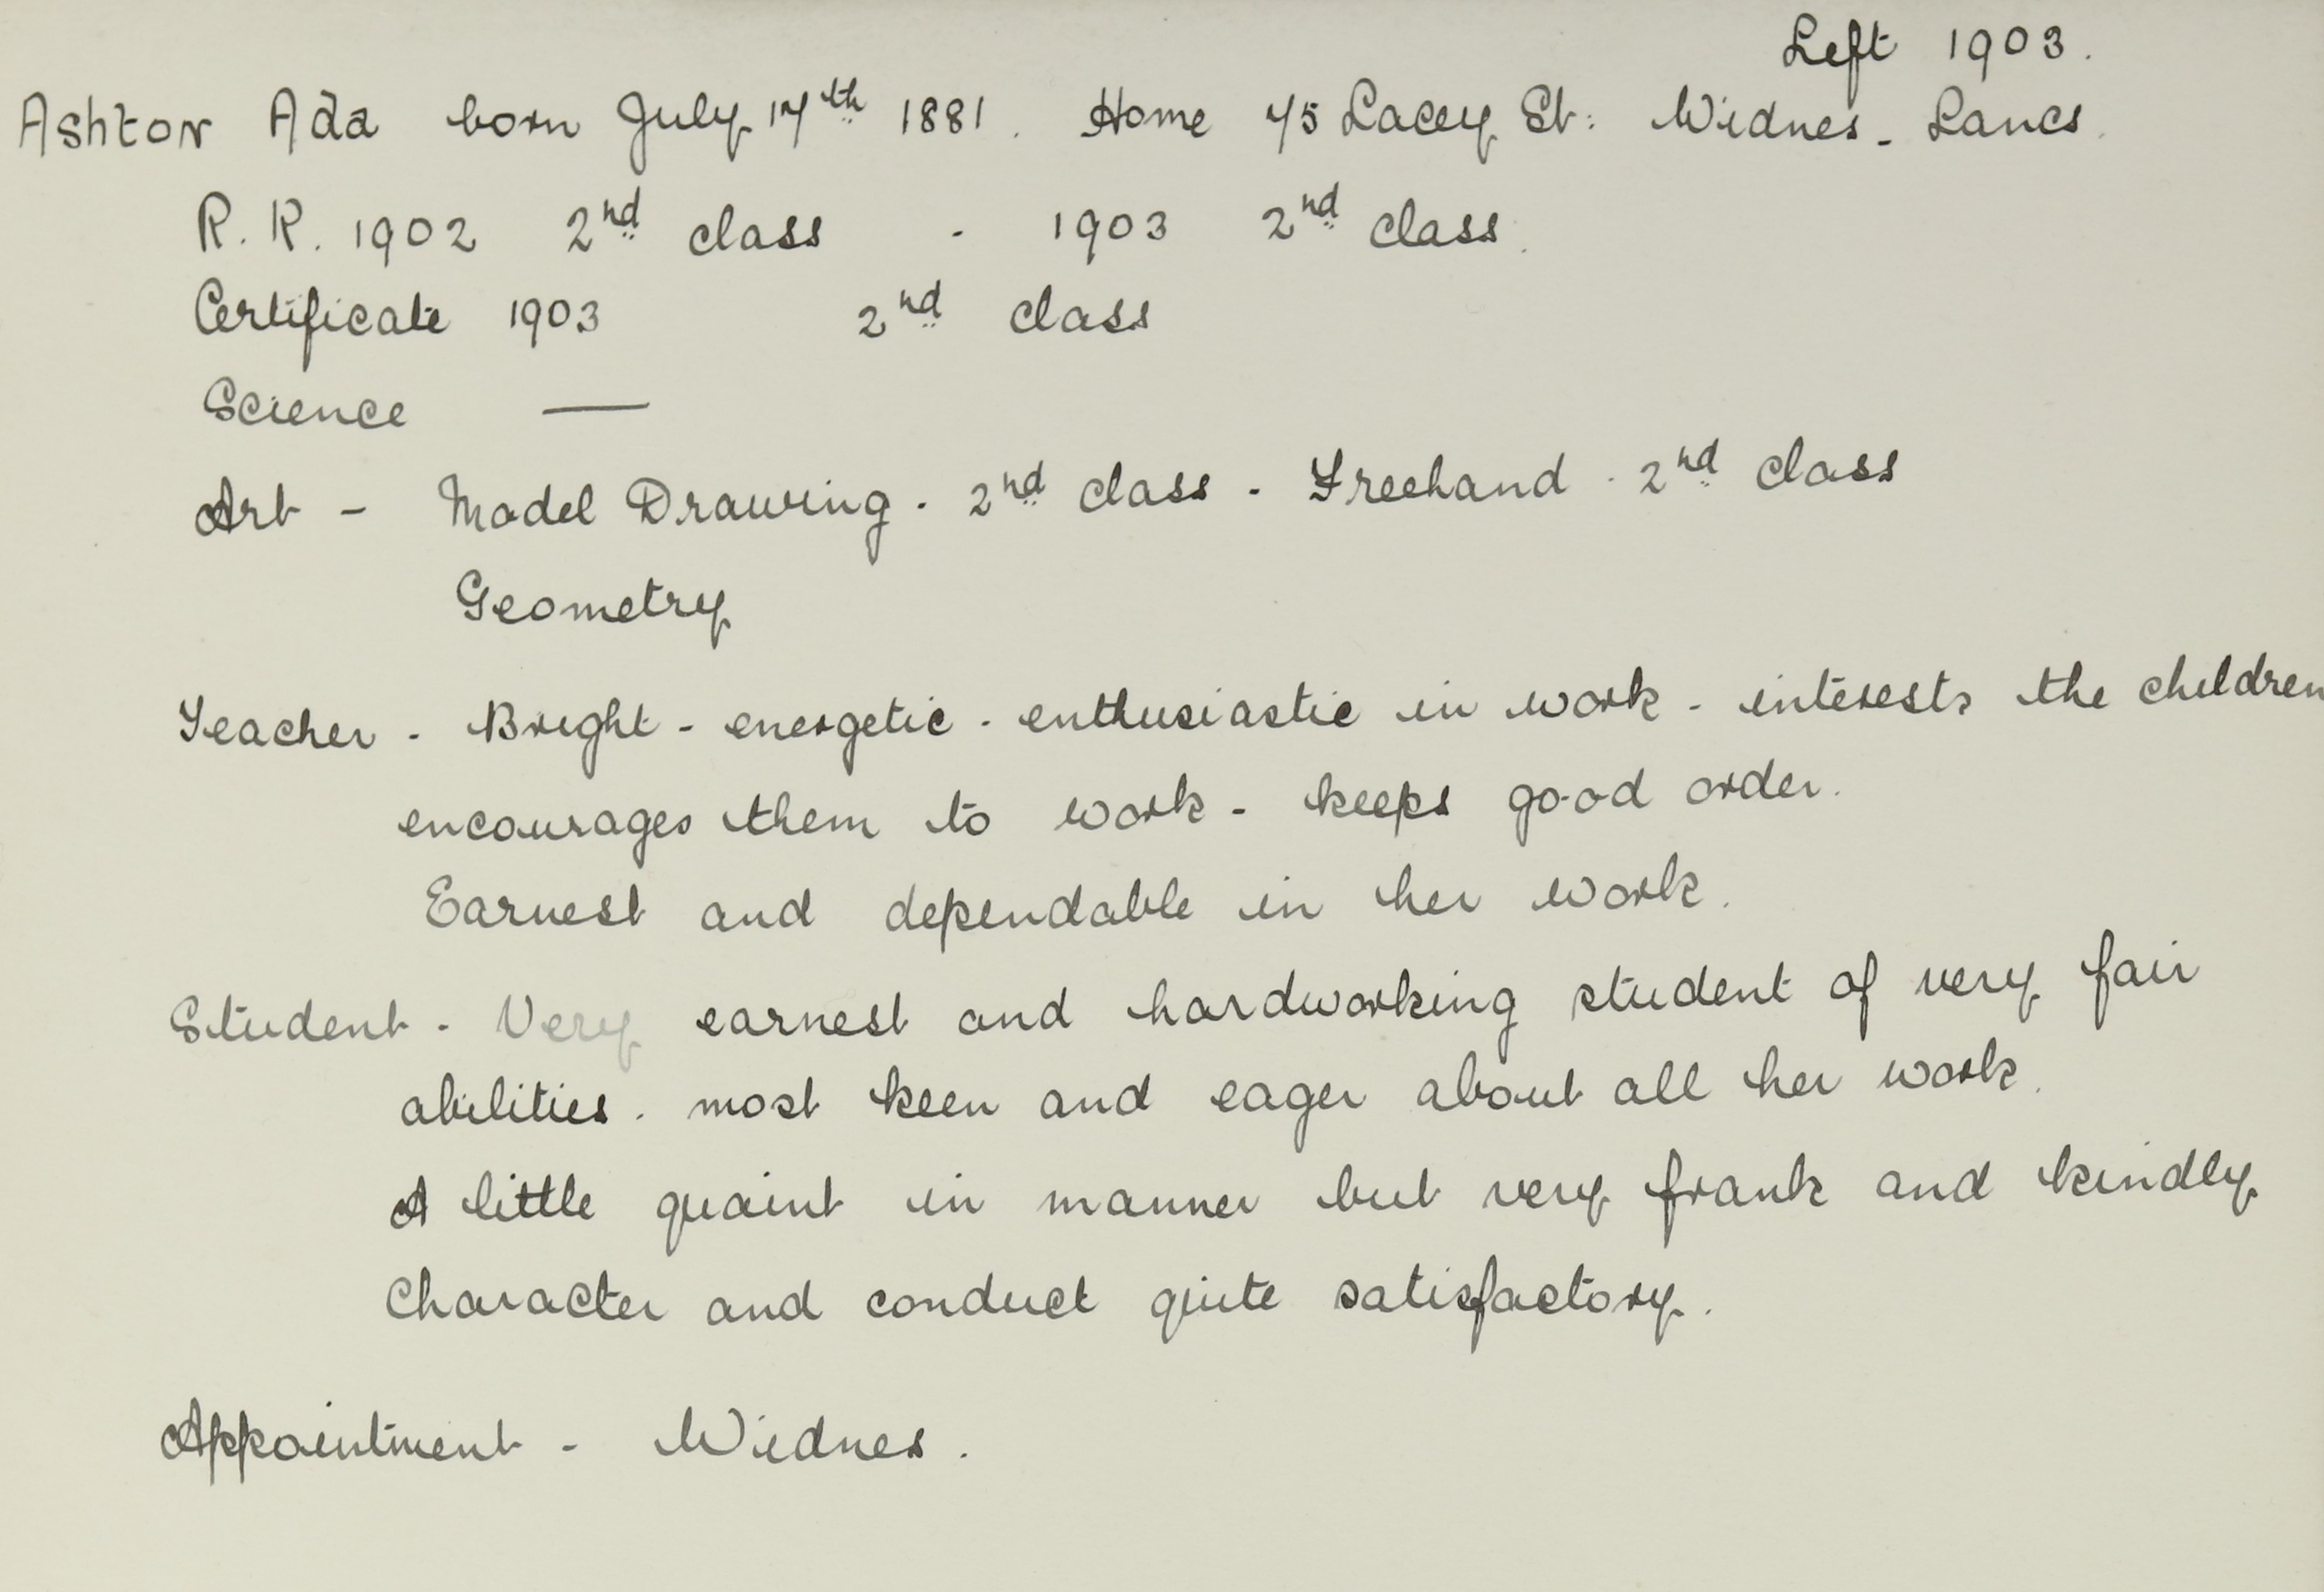 Left 1903.
Ashton Ada born July 17th 1881. Home 75 Lacey St: Widnes - Lancs.
R. K. 1902 2nd class - 1903 2nd class.
Certificate 1903 2nd class
Science —
Art - Model Drawing - 2nd class - Freehand - 2nd class
Geometry
Teacher - Bright - energetic - enthusiastic in work - interests the children
encourages them to work - keeps good order.
Earnest and dependable in her work.
Student - Very earnest and hardworking student of very fair
abilities - most keen and eager about all her work.
A little quaint in manner but very frank and kindly
Character and conduct quite satisfactory.
Appointment - Widnes.